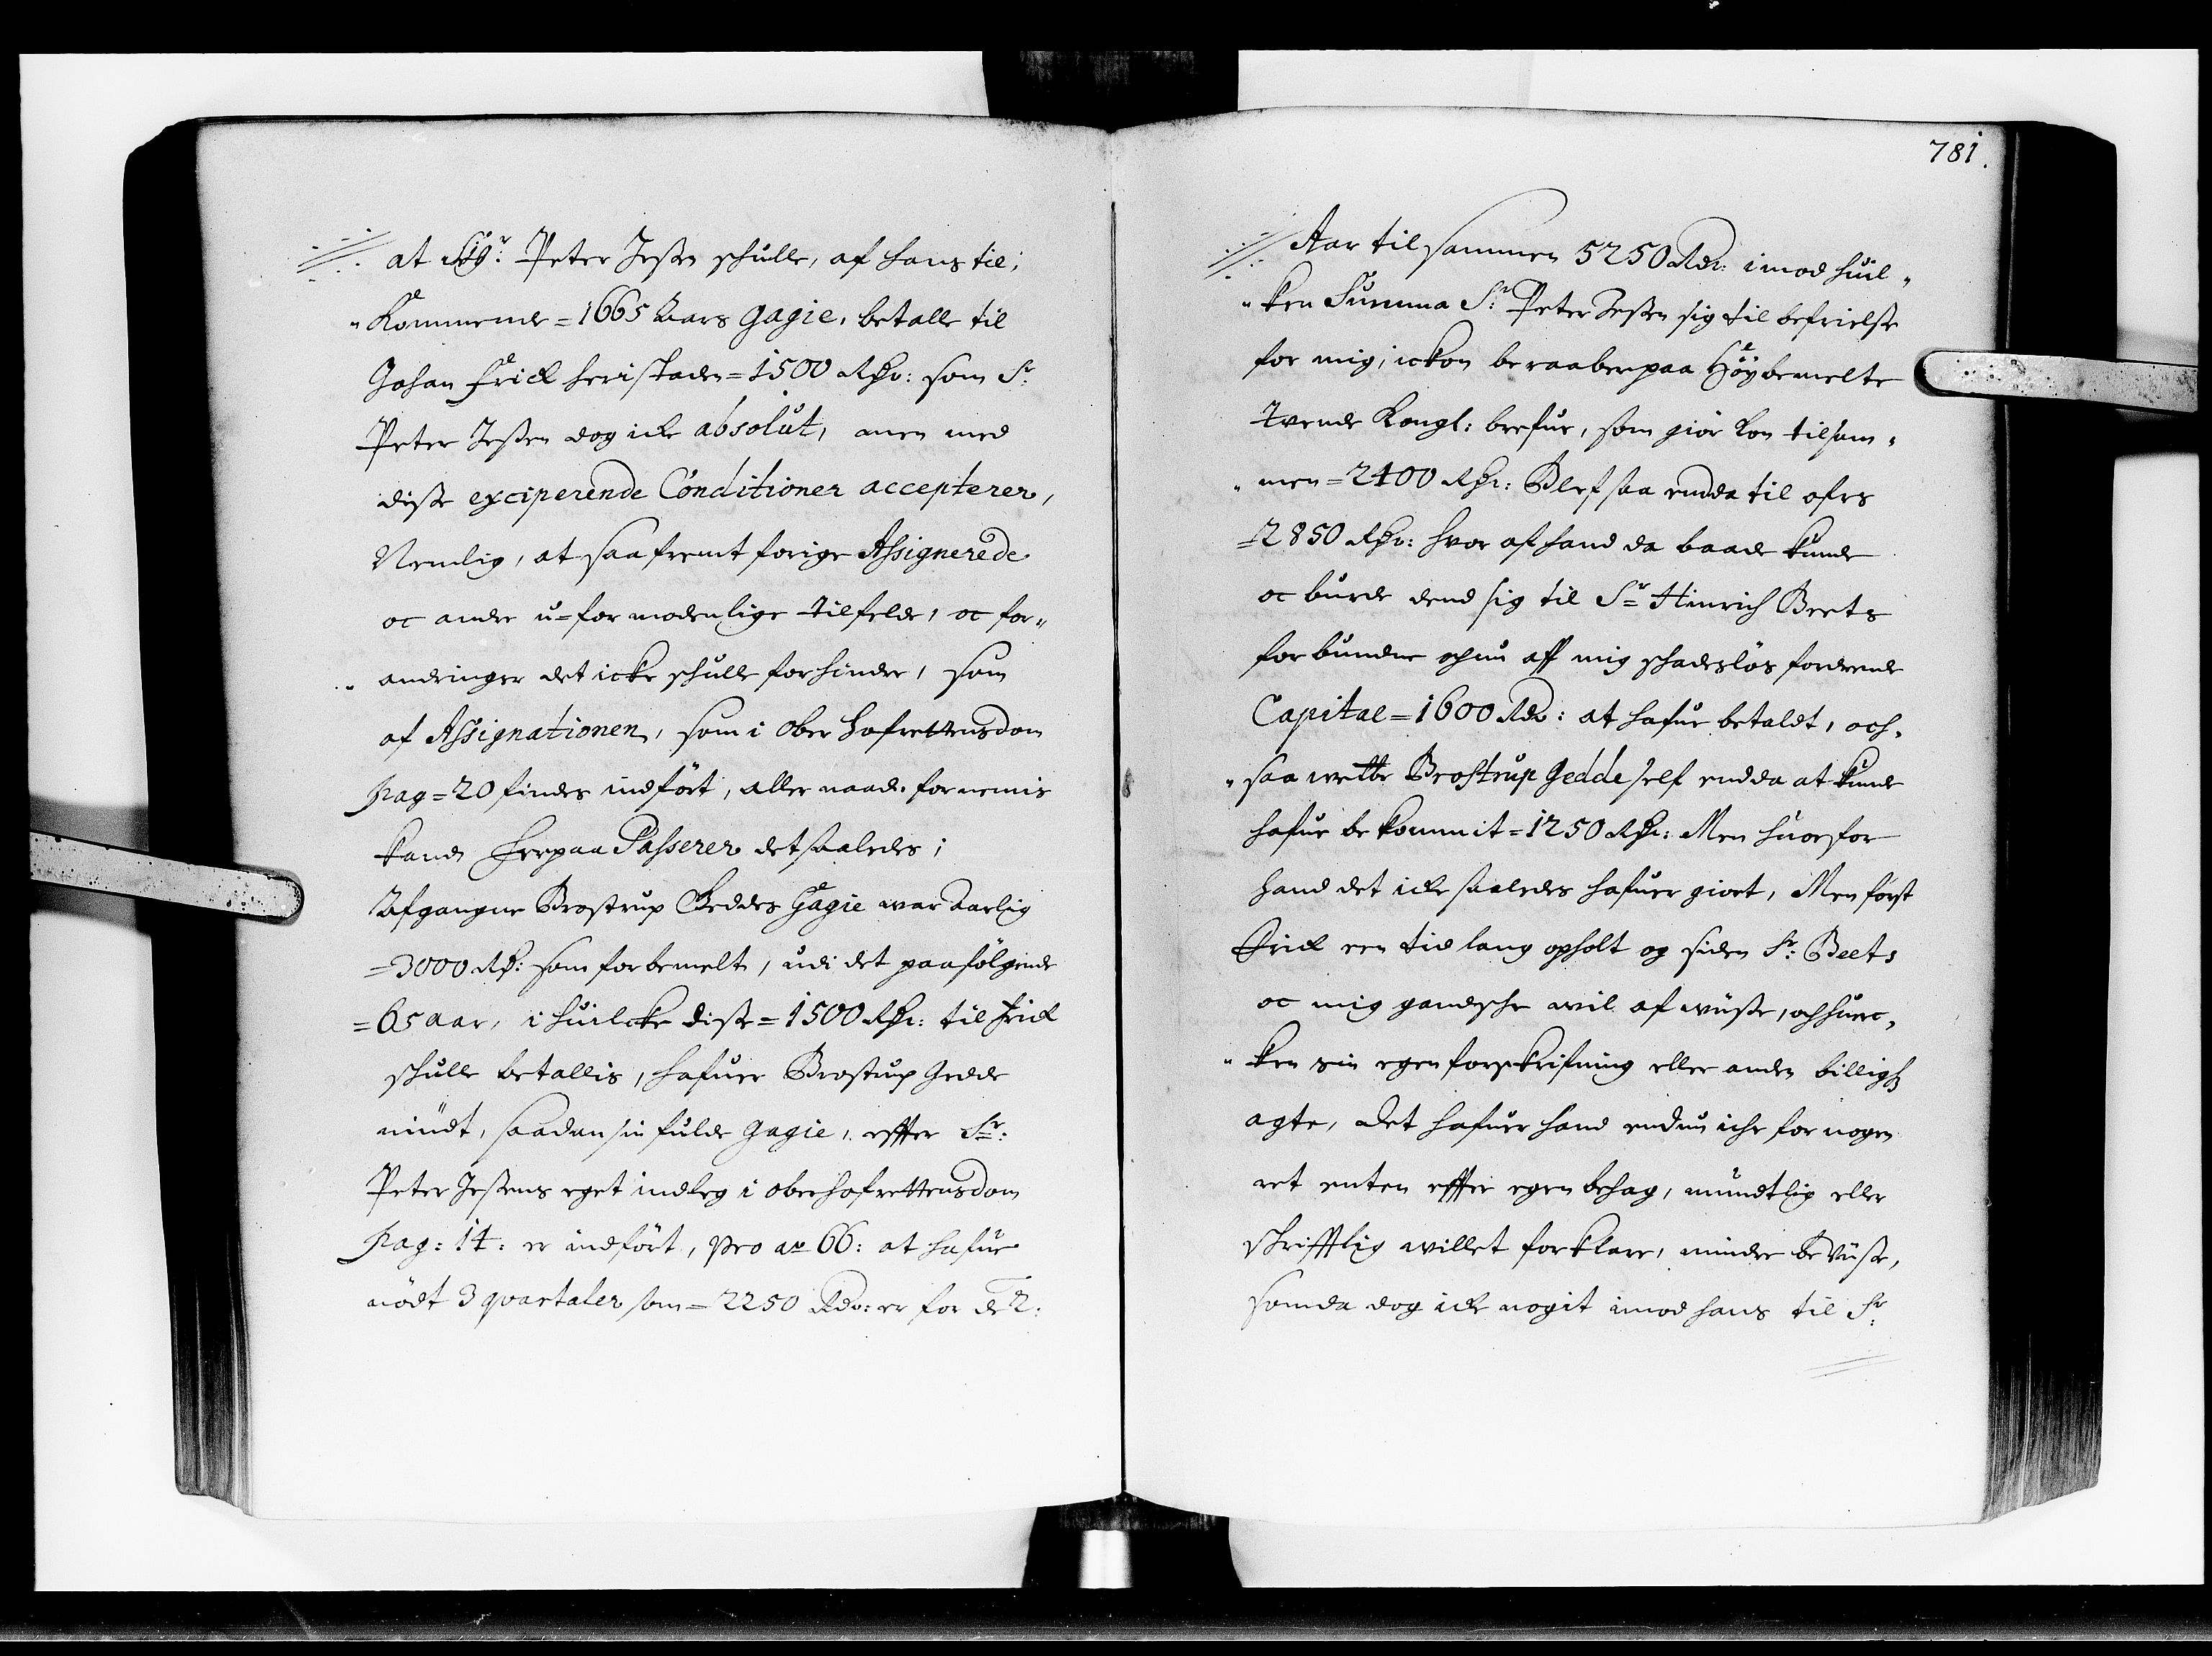 at Sigr: Peter Jessen schulle, af hans til,
"Kommende =1665 Aars gagie, betalle til
Johan Frick heri staden =1500 Rdr: som Sr:
Peter Jessen dog icke absolut, men med
disse exciperende Conditioner accepterer,
Nemlig, at saafremt forige Assignerede
oc andre u=formodenlige tilfelde, oc for"
"andringer det icke schulle forhindre, som
af Assignationen, som i Ober Hofrettens dom
pag=20 findes indført, aller naad. fornemis
kand herpaa Passerer det saaledes;
Afgangne Brostrup Geddes Gagie war Aarlig
=3000 Rdr: som forbemelt, udi det paafölgende
=65 aar, i huilcke disse =1500 Rdr: til Frick
schulle betallis, hafuer Brostrup Gedde
nindt, saadan sin fulde Gagie, effter Sr:
Peter Jessens eget indleg i oberhofrettens dom
Pag: 14: er indfört, pro ao 66: at hafue
nödt 3 qvartaler som =2250 Rdr: er for de 2:
781.
Aar tilsammen 5250 Rdr: imod huil"
"ken Summa Sr: Peter Jessen sig til befrielse
for mig, ickon beraaber paa Höybemelte
Tvende Kongl: brefue, som giör kon tilsam"
"men =2400 Rdr: Blef saa endda til ofvers
=2850 Rdr: hvor af hand da baade kunde
oc burde dend sig til Sr Hinrich Beets
forbundne och nu aff mig schadesløs fordrende
Capital =1600 Rdr: at hafue betaldt, och"
"saa Brostrup Gedde self endda at kunde
hafue bekommit =1250 Rdr: Men huorfor
hand det icke saaledes hafuer giort, Men först
Frick een tid lang opholt og siden Sr: Beets
oc mig gandsche wil af wiisse, och huerc"
"ken sin egen forskrifning eller anden billigh
agte, Det hafuer hand endnu iche for nogen
ret enten effter egen behag, mundtlig eller
schrifftlig willet forklare, mindre beviisse,
som da dog icke nogit imod hans til Sr: